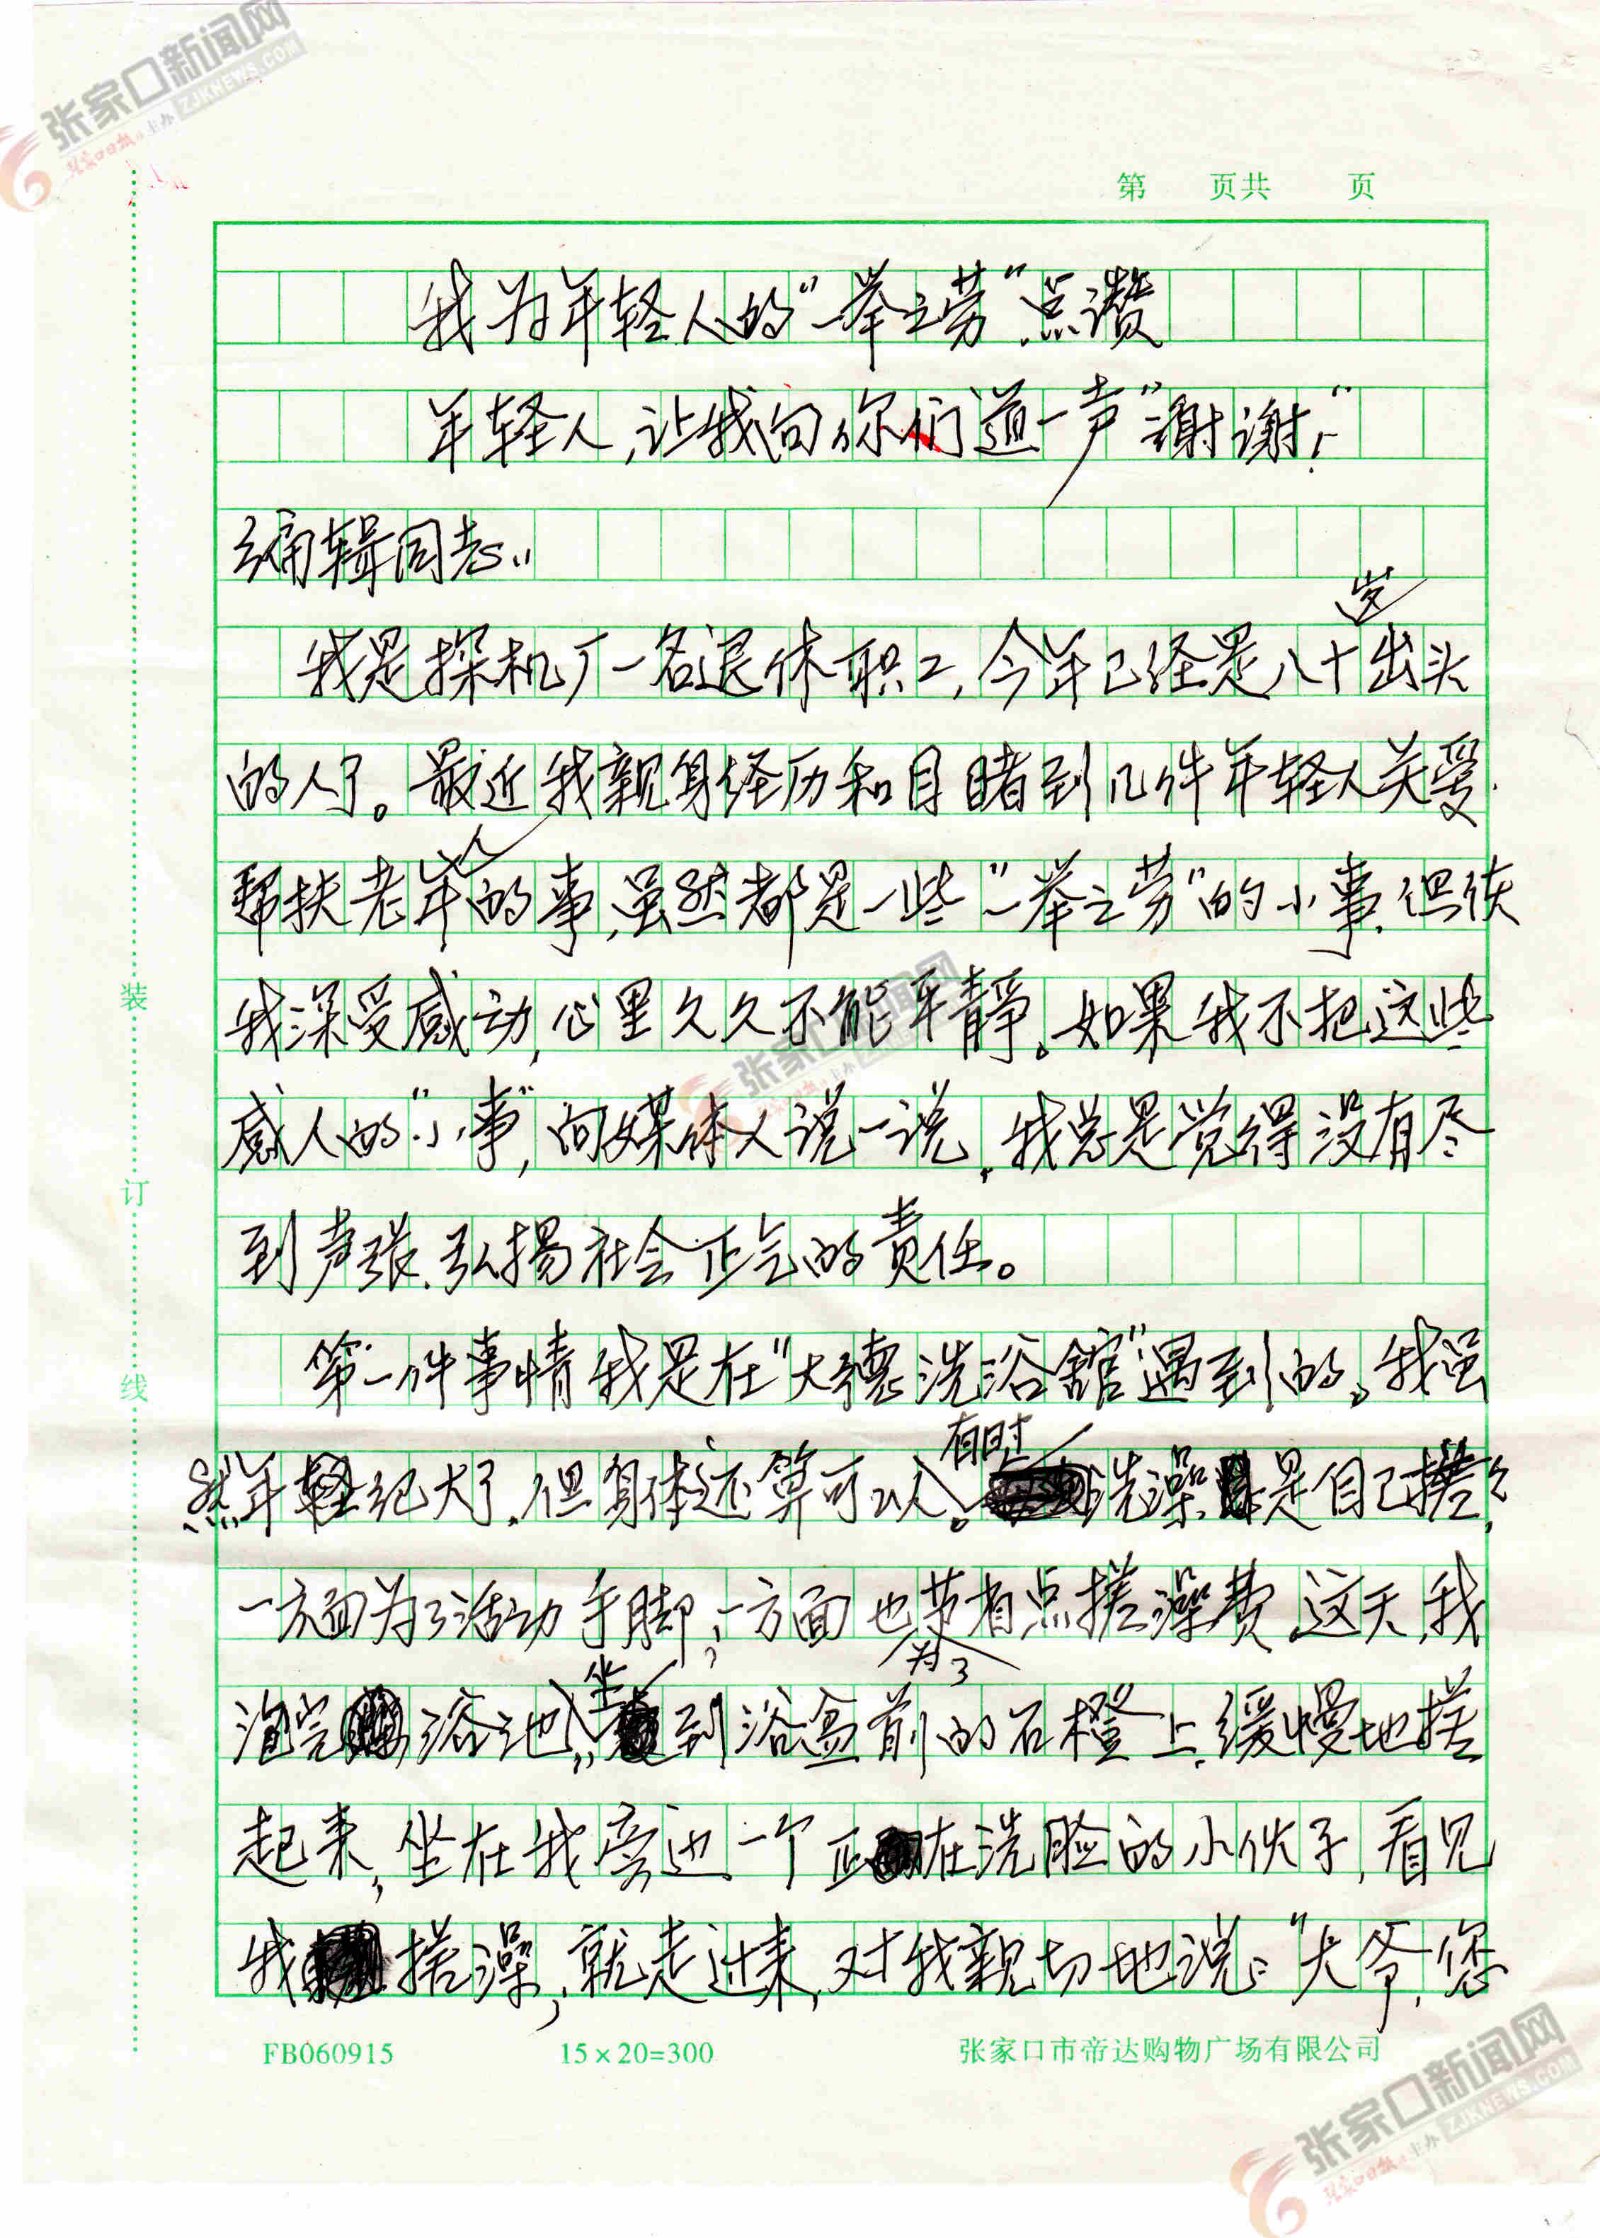 张家口新闻网
ZJKNEWS.COM
张家口日报 主办
第 页共 页
我为年轻人的“一举之劳”点赞
年轻人,让我向你们道一声“谢谢!”
编辑同志:
我是探机厂一名退休职工,今年已经是八十岁出头
的人了。最近我亲身经历和目睹到几件年轻人关爱.
帮扶老年人的事,虽然都是一些“一举之劳”的小事.但使
我深受感动,心里久久不能平静。如果我不把这些
感人的“小事”,向媒体人说一说,我总是觉得没有尽
到声张.弘扬社会正气的责任。
第一件事情我是在“大德洗浴舘”遇到的。我虽
然年纪大了.但身体还算可以。有时洗澡是自己搓,
一方面为了活动手脚,一方面也为了节省点搓澡费.这天,我
泡完浴池,坐到浴盆前的石橙上,缓慢地搓
起来,坐在我旁边一个正在洗脸的小伙子,看见
我搓澡,就走过来,对我亲切地说:“大爷,您
装
订
线
FB060915 15×20=300 张家口市帝达购物广场有限公司
张家口新闻网
ZJKNEWS.COM
张家口日报 主办
张家口新闻网
ZJKNEWS.COM
张家口日报 主办